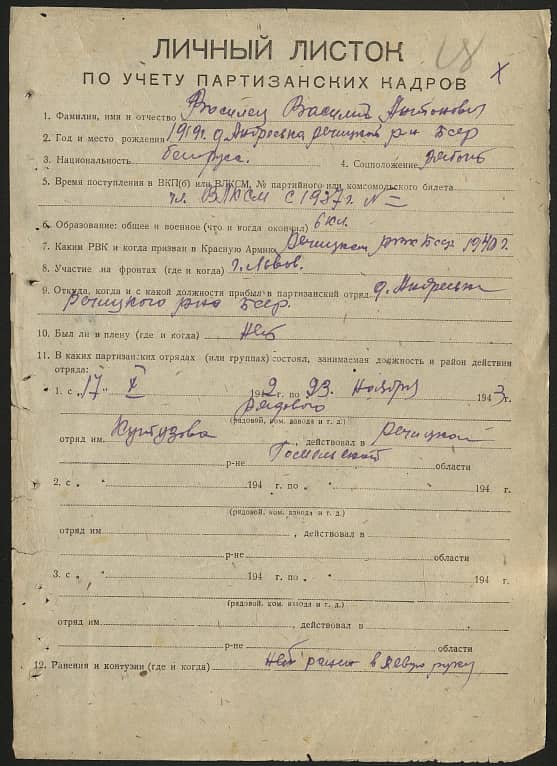 ЛИЧНЫЙ ЛИСТОК
ПО УЧЕТУ ПАРТИЗАНСКИХ КАДРОВ
1. Фамилия, имя и отчество Василец Василий Антонович
2. Год и место рождения 1919г. д. Андреевка Речицкой р-н Бсср
3. Национальность белорус. 4. Соцположение рабочь
5. Время поступления в ВКП(б) или ВЛКСМ, № партийного или комсомольского билета
чл. ВЛКСМ с 1937г. №
6. Образование: общее и военное (что и когда окончил) 6 кл.
7. Каким РВК и когда призван в Красную Армию Речицким рвк Бсср 1940г.
8. Участие на фронтах (где и когда) г. Львов.
9. Откуда, когда и с какой должности прибыл в партизанский отряд д. Андреевка
Речицкого р-на Бсср.
10. Был ли в плену (где и когда) Нет
11. В каких партизанских отрядах (или группах) состоял, занимаемая должность и район действия
отряда:
1. с „17" X 1942 г. по 23. ноября 1943г.
рядового
(рядовой, ком. взвода и т. д.)
отряд им. Кутузова, действовал в Речицком
р-не Гомельской области
2. с „ " 194 г. по „ " 194 г.
(рядовой, ком. взвода и т. д.)
отряд им. , действовал в
р-не области
3. с „ " 194 г. по „ " 194 г.
(рядовой, ком. взвода и т. д.)
отряд им. , действовал в
р-не области
12. Ранения и контузии (где и когда) Нет ранен в левую руку